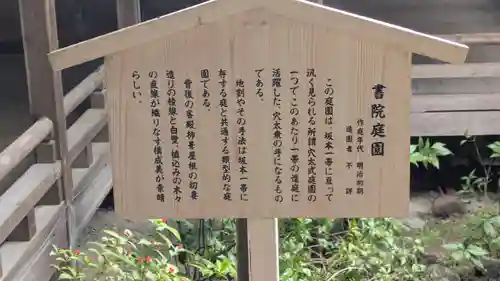 書院庭園
作庭年代 明治初期
造園者 不詳
この庭園は、坂本一帯に亘って
汎く見られる所謂穴太式庭園の
一つで、このあたり一帯の造庭に
活躍した、穴太衆の手になるもの
である。
地割やその手法は坂本一帯に
存する庭と共通する類型的な庭
園である。
背後の客殿柿葺屋根の切妻
造りの稜線と白壁、植込みの木々
の直線が織りなす構成美が素晴
らしい。